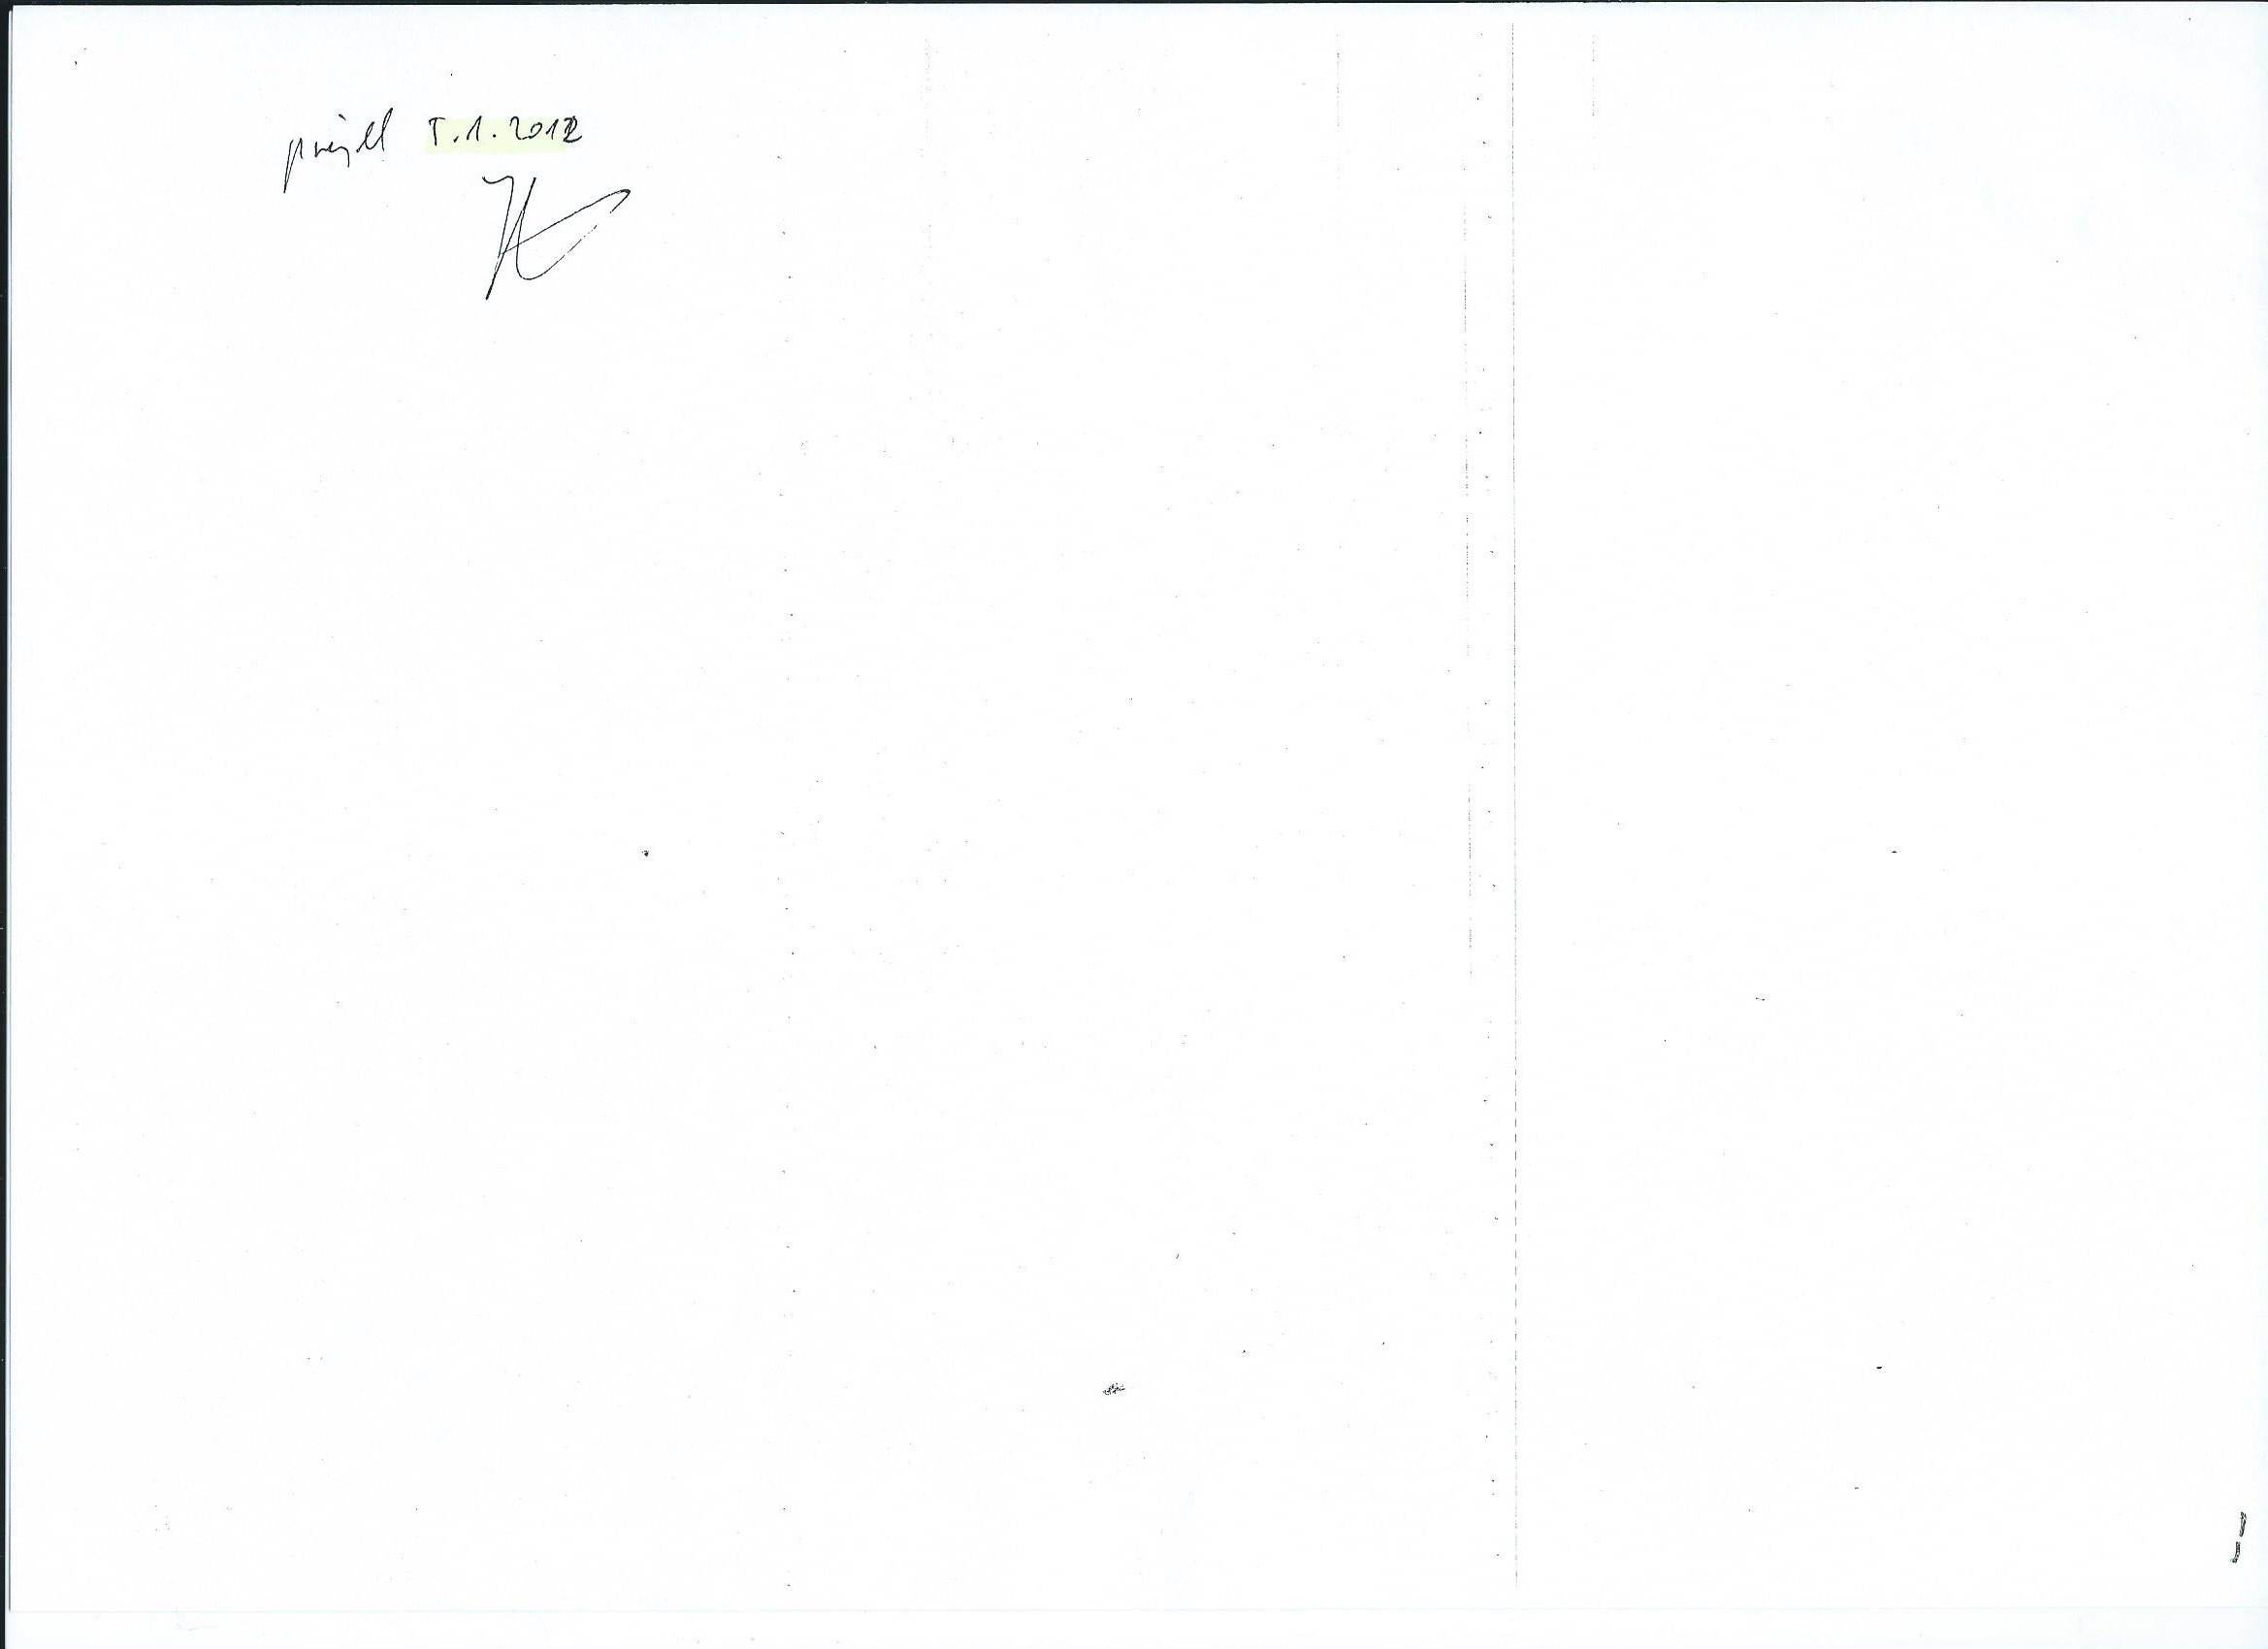 přijel 5.1.2012